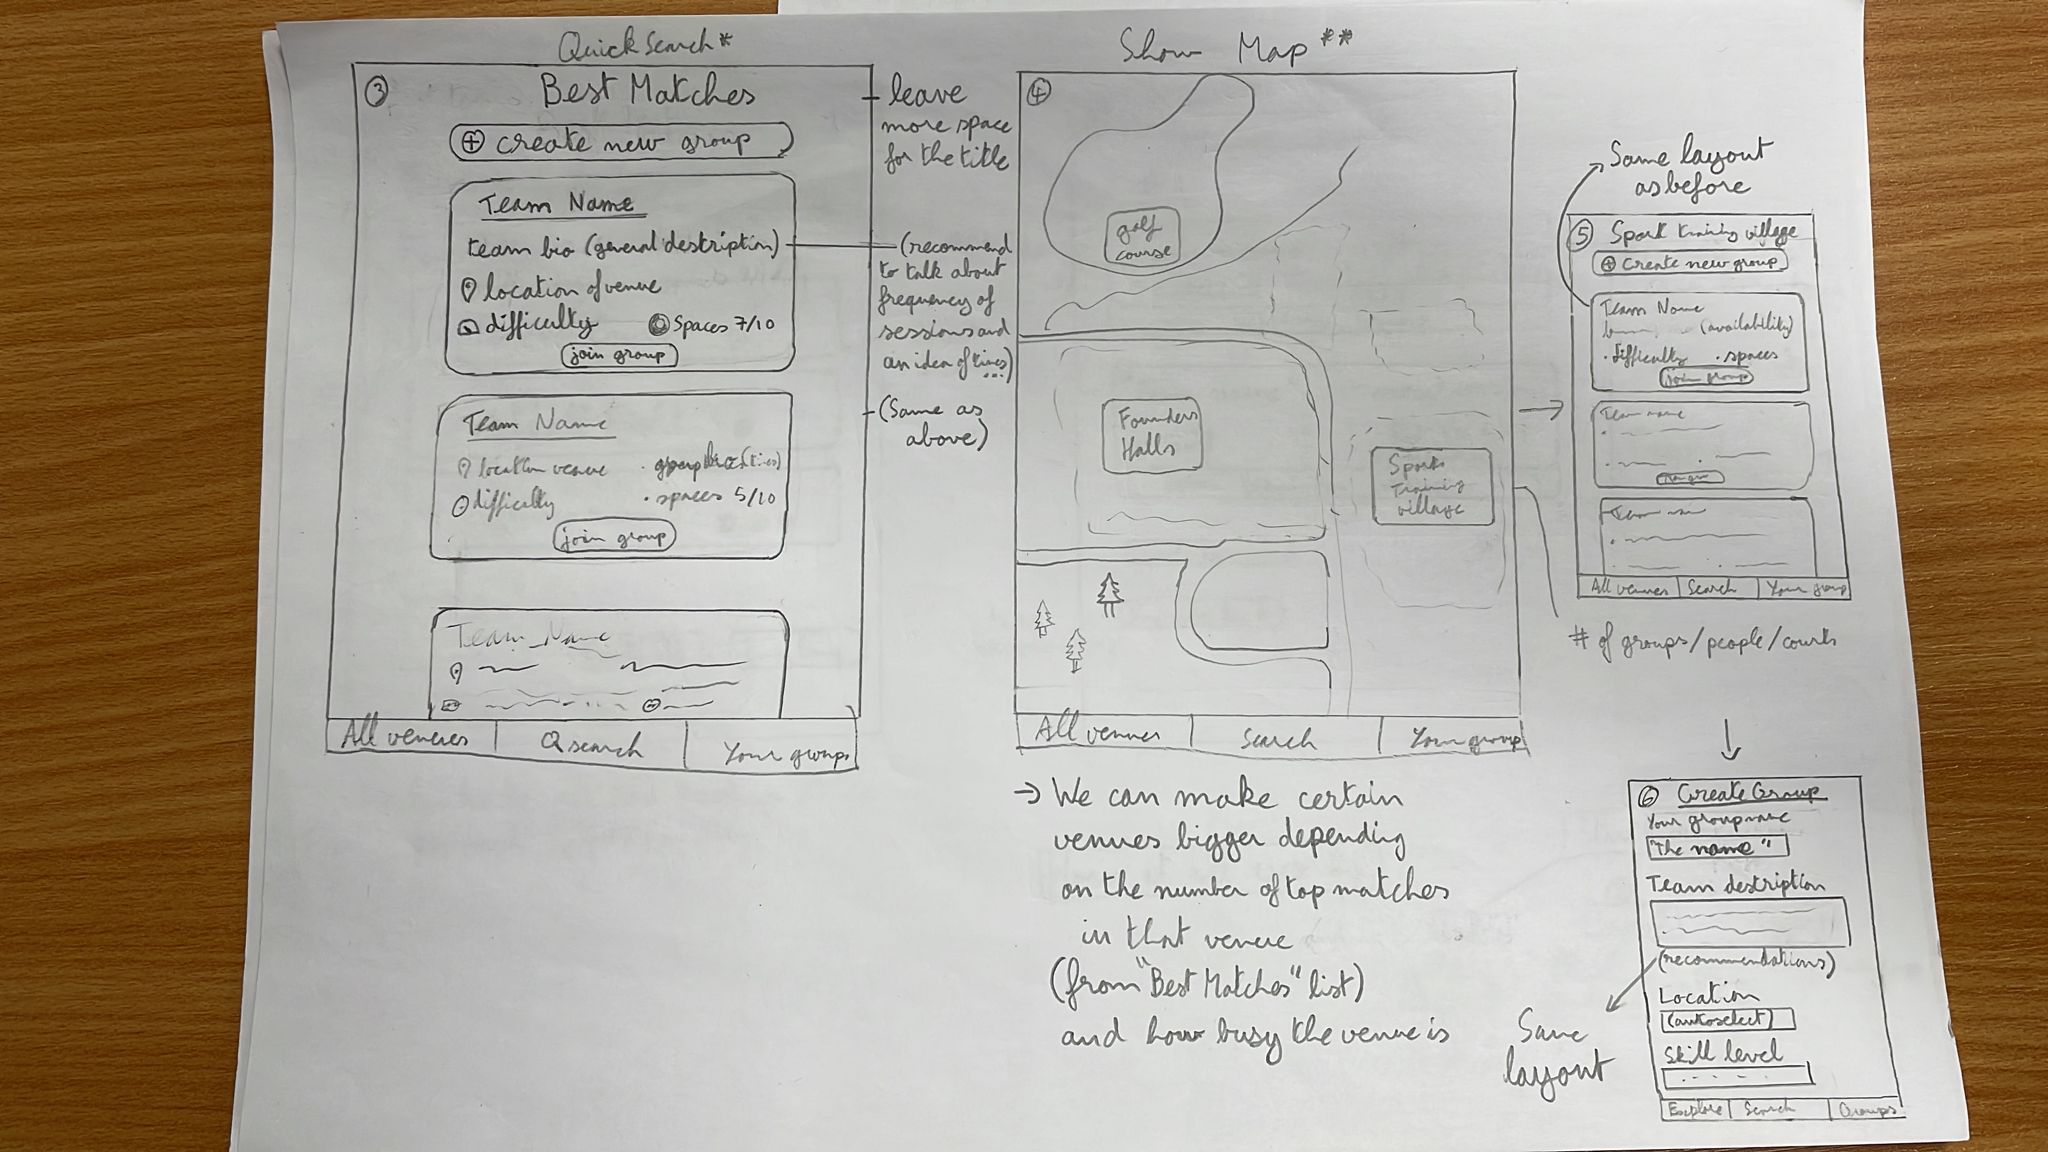 Quick Search*
③
Best Matches
⊕ create new group
Team Name
team bio (general description)
location of venue
difficulty
Spaces 7/10
join group
Team Name
location venue
difficulty
· spaces 5/10
join group
Team Name
All venues
Q search
Your groups
- leave
more space
for the title
(recommend
to talk about
frequency of
sessions and
an idea of times)
(Same as
above)
Show Map**
④
golf
course
Founders
Halls
Sports
Training
village
All venues
Search
Your group
→ We can make certain
venues bigger depending
on the number of top matches
in that venue
(from "Best Matches" list)
and how busy the venue is
Same layout
as before
⑤ Spork training village
⊕ Create new group
Team Name
(availability)
· difficulty · spaces
join group
Team name
Team name
All venues
Search
Your group
# of groups/people/courts
⑥ Create Group
Your group name
"The name"
Team description
(recommendations)
Location
(autoselect)
Skill level
Explore
Search
Groups
Same
layout